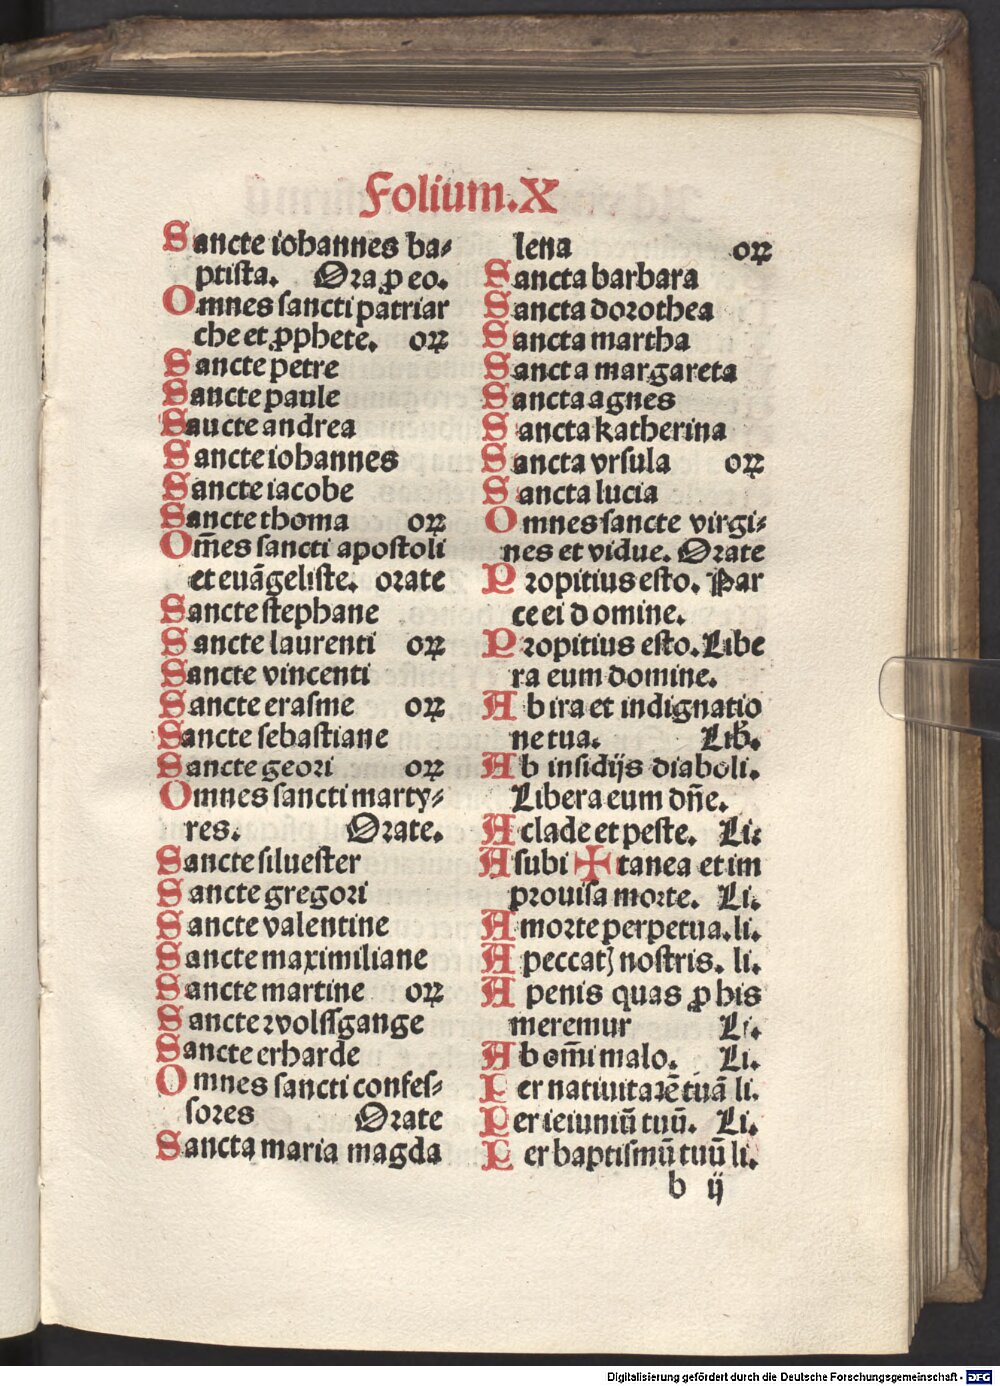 Folium.X
Sancte iohannes ba⸗
ptista. Ora ꝓ eo.
Omnes sancti patriar
che et ꝓphete. orꝝ
Sancte petre
Sancte paule
Saucte andrea
Sancte iohannes
Sancte iacobe
Sancte thoma orꝝ
Om̄es sancti apostoli
et euāgeliste. orate
Sancte stephane
Sancte laurenti orꝝ
Sancte vincenti
Sancte erasme orꝝ
Sancte sebastiane
Sancte geori orꝝ
Omnes sancti marty⸗
res. Orate.
Sancte siluester
Sancte gregori
Sancte valentine
Sancte maximiliane
Sancte martine orꝝ
Sancte wolffgange
Sancte erharde
Omnes sancti confes⸗
sores Orate
Sancta maria magda
lena orꝝ
Sancta barbara
Sancta dorothea
Sancta martha
Sancta margareta
Sancta agnes
Sancta katherina
Sancta vrsula orꝝ
Sancta lucia
Omnes sancte virgi⸗
nes et vidue. Orate
Propitius esto. Par
ce ei domine.
Propitius esto. Libe
ra eum domine.
Ab ira et indignatio
ne tua. Lib̄.
Ab insidijs diaboli.
Libera eum dn̄e.
A clade et peste. Li:
A subi ✠ tanea et im
prouisa morte. Li.
A morte perpetua. li.
A peccatꝭ nostris. li.
A penis quas ꝓ his
meremur Li.
Ab om̄i malo. Li.
Per natiuitatē tuā li.
Per ieiuniū tuū. Li.
Per baptismū tuū li.
b ij
Digitalisierung gefördert durch die Deutsche Forschungsgemeinschaft - DFG